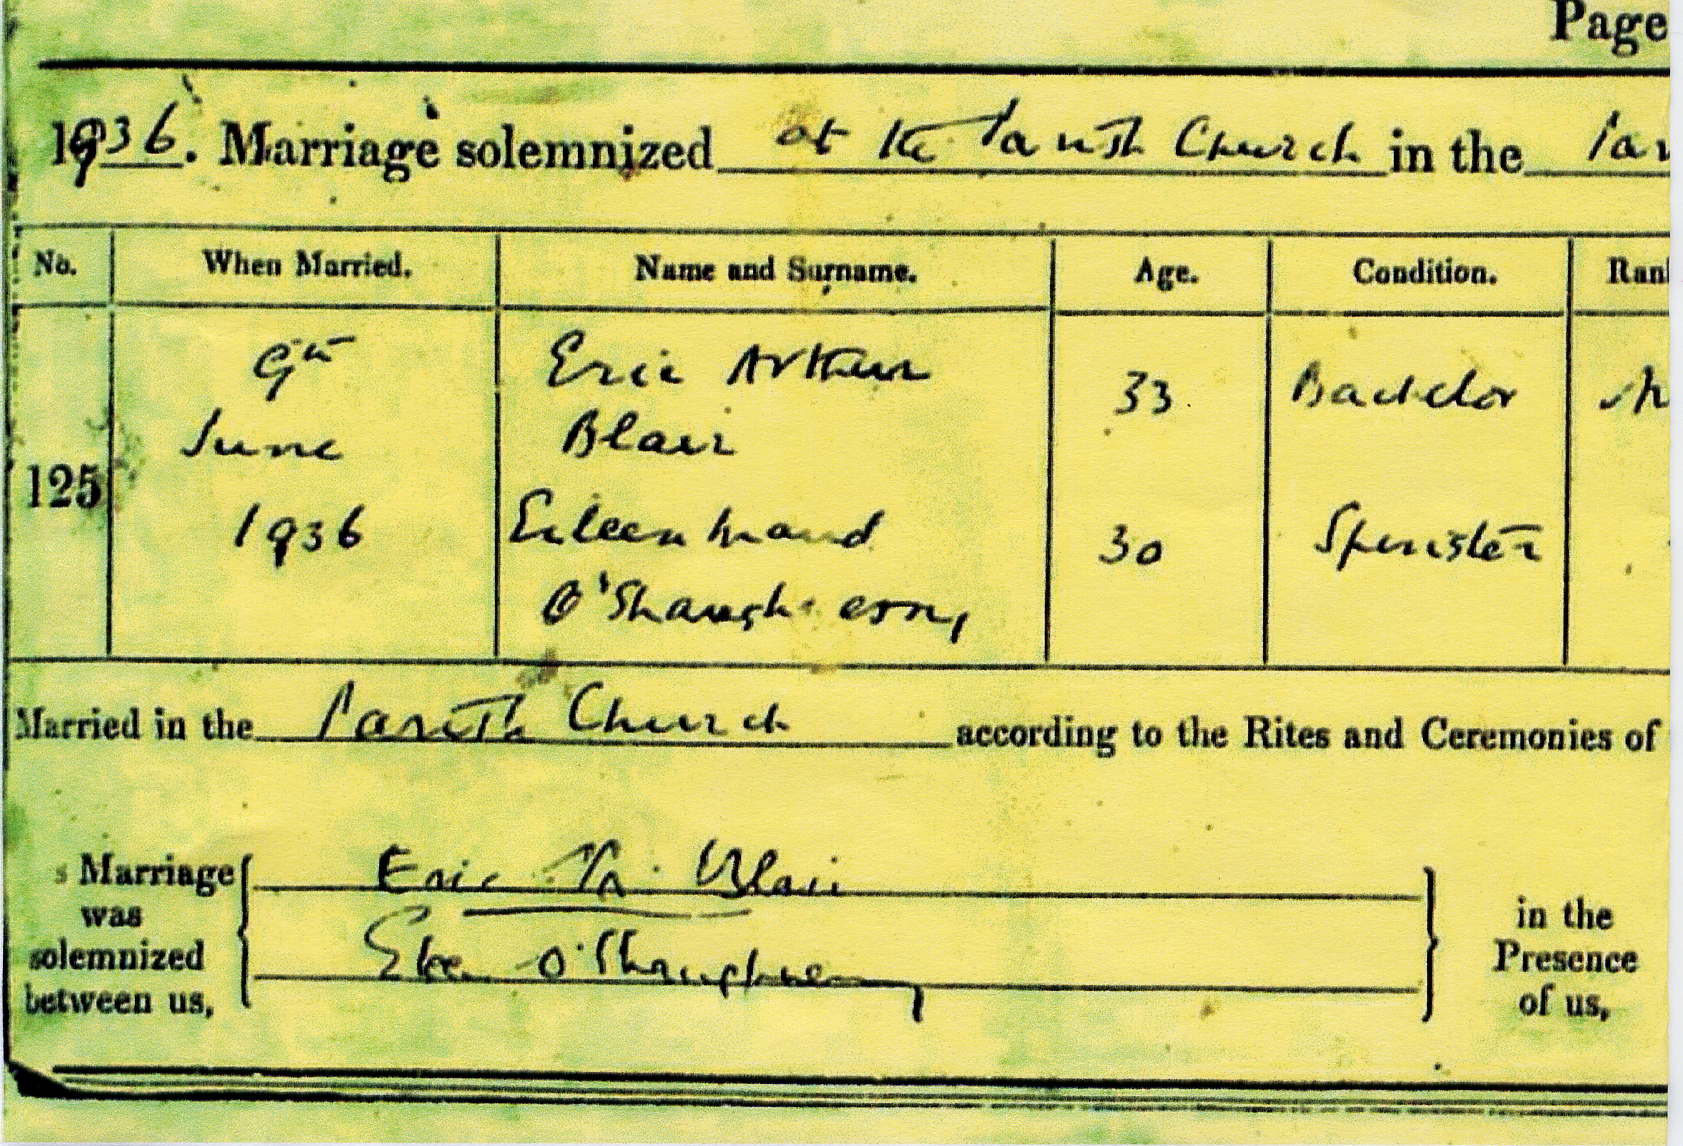 Page
1936. Marriage solemnized at the Parish Church in the
No. When Married. Name and Surname. Age. Condition.
9th Eric Arthur 33 Bachelor
June Blair
125
1936 Eileen Maud 30 Spinster
O'Shaughnessy
Married in the Parish Church according to the Rites and Ceremonies of
Marriage Eric A. Blair
was in the
solemnized Eileen O'Shaughnessy Presence
between us, of us,